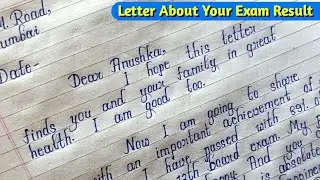 Letter About Your Exam Result
M. Road,
Mumbai
Date-
Dear Anushka,
I hope this letter
finds you and your family in great
health. I am good too.
Now I am going to share
with an important achievement of
I have passed with 89%
12th board exam. My
happy. And you
is absolute